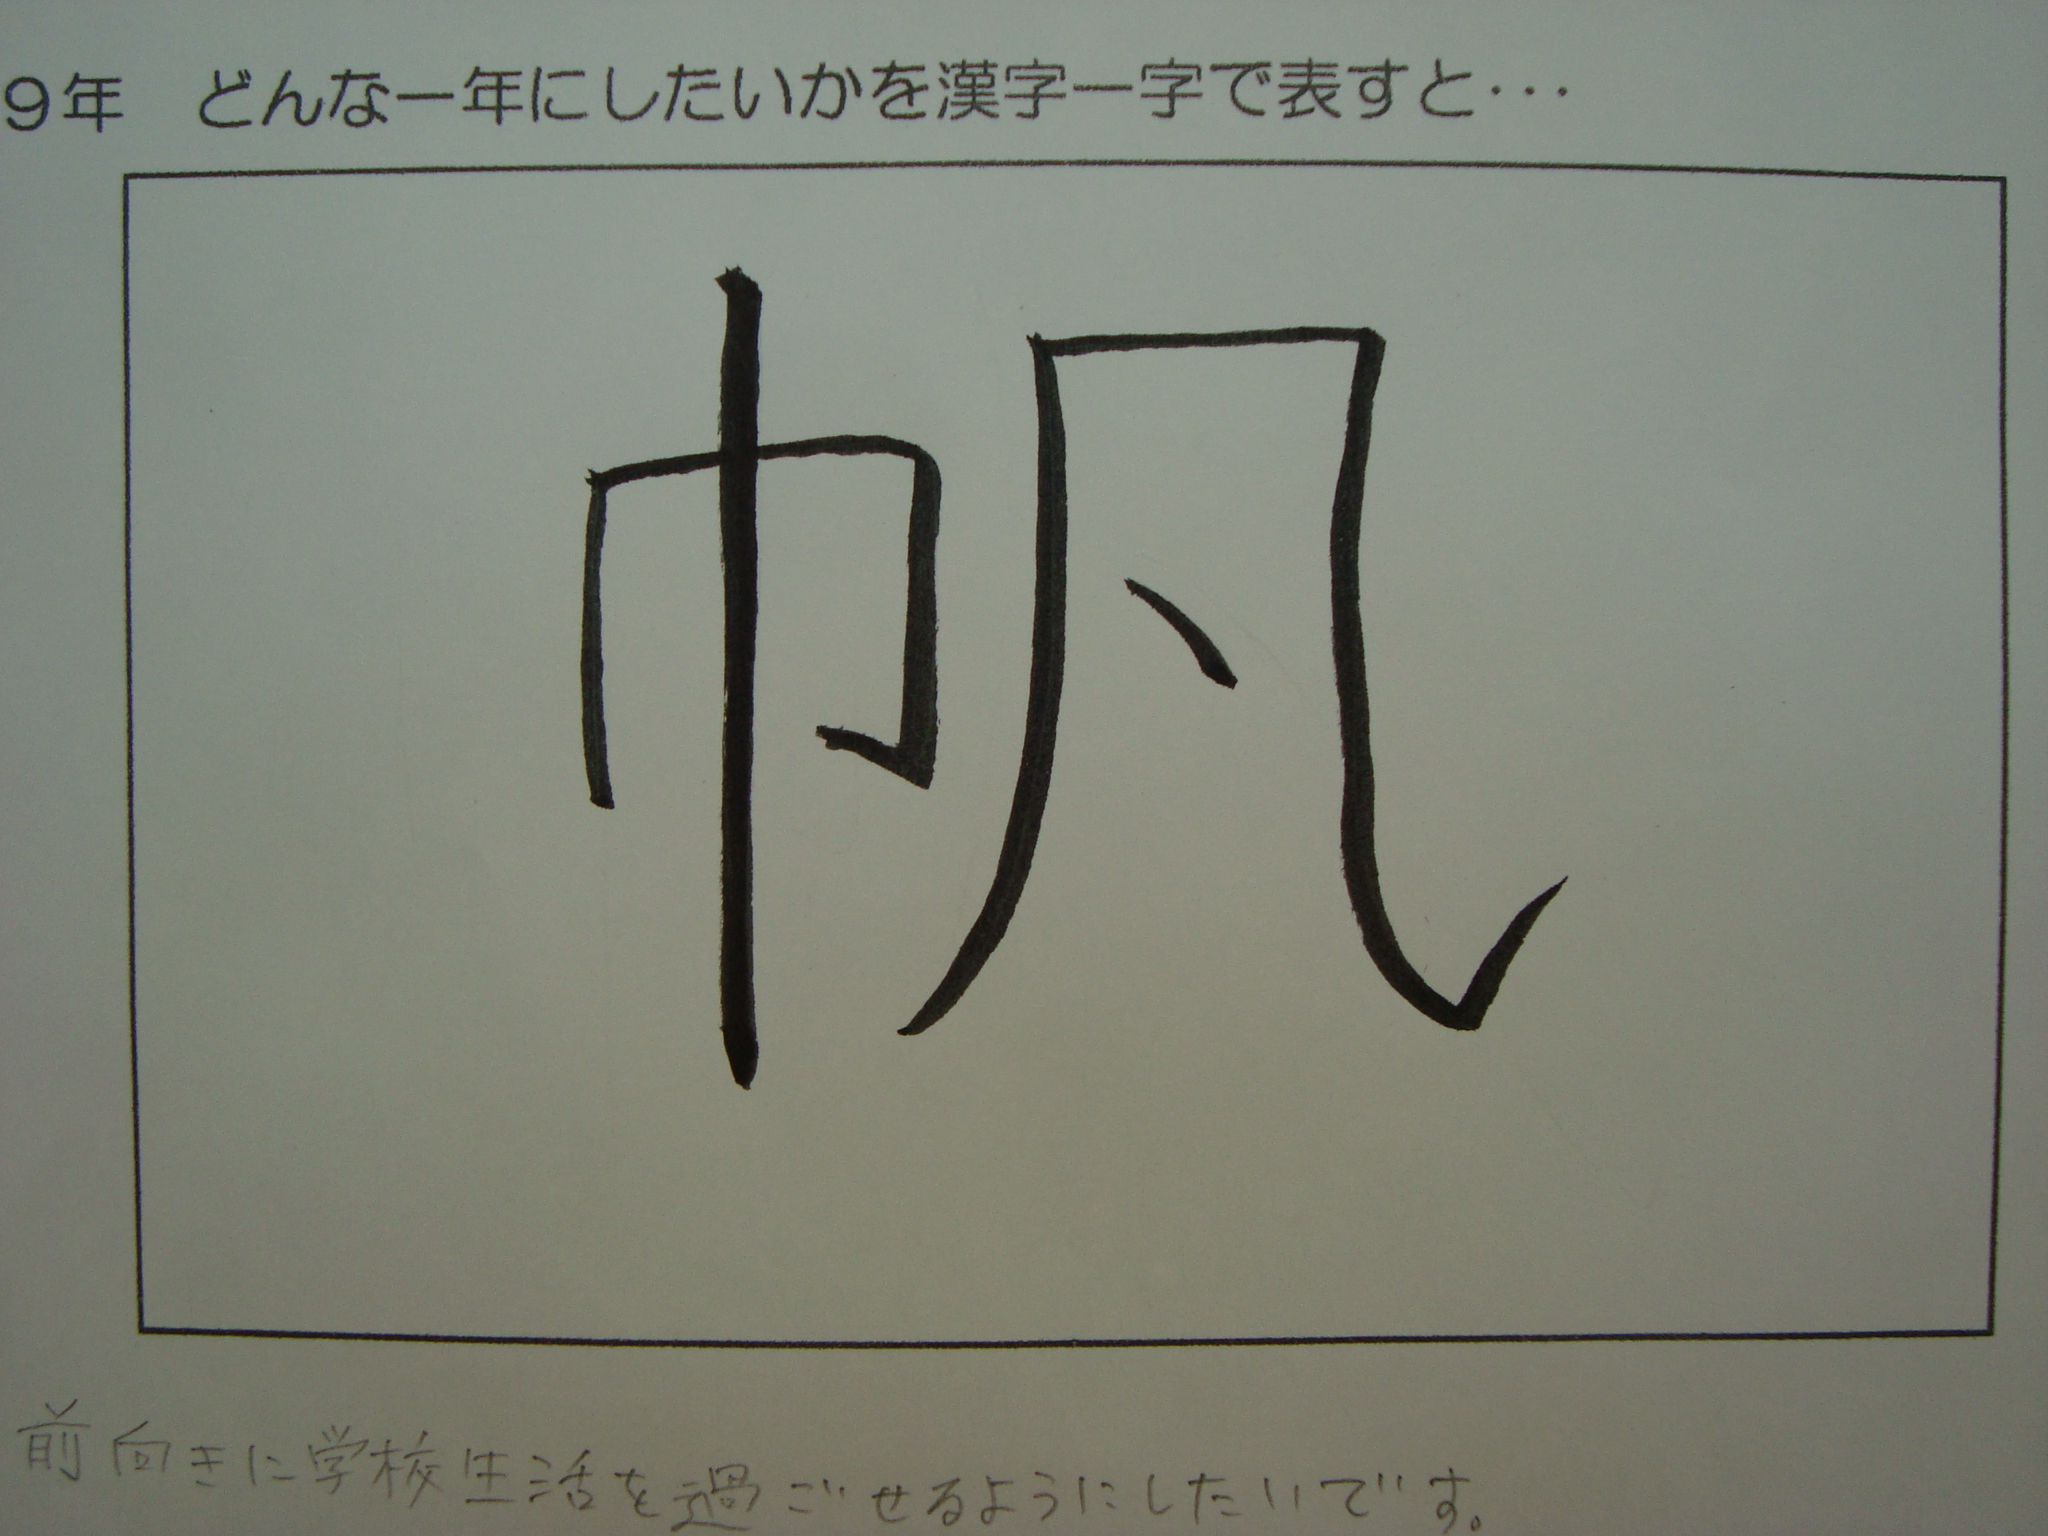 9年　どんな一年にしたいかを漢字一字で表すと･･･
帆
前向きに学校生活を過ごせるようにしたいです。